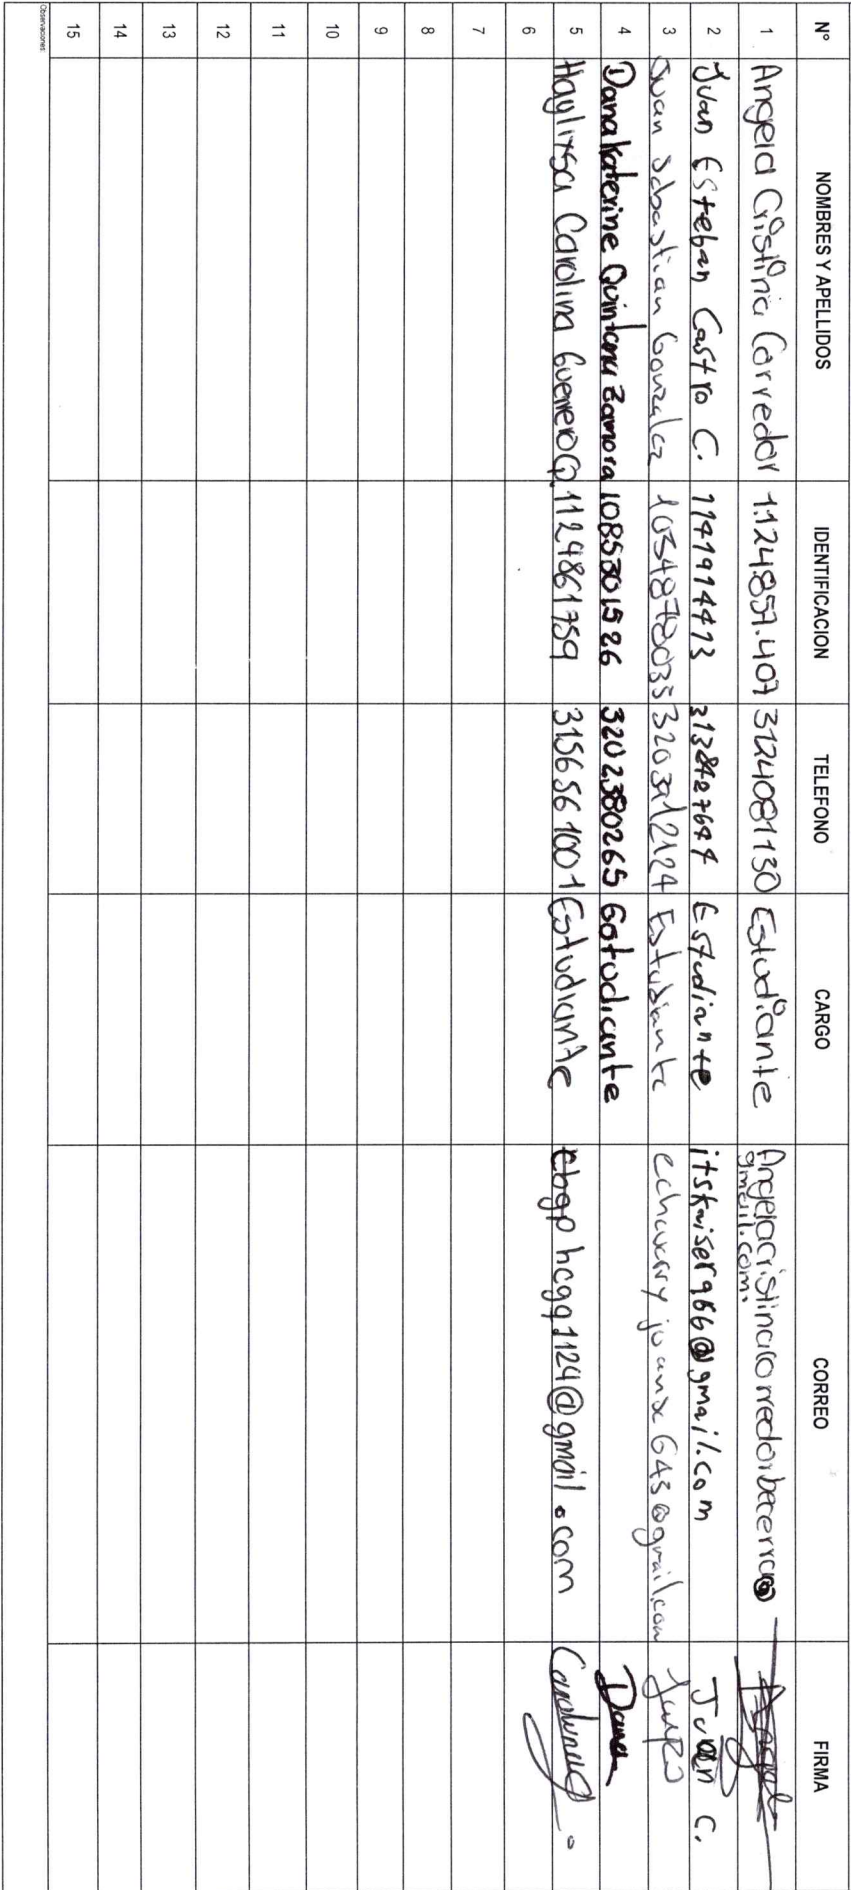 N° NOMBRES Y APELLIDOS IDENTIFICACION TELEFONO CARGO CORREO FIRMA
1 Angela Cristina Corredor 1.124.857.407 3124081130 Estudiante Angelacristinacorredorbecerra@
gmail.com. Angela
2 Juan Esteban Castro C. 1141914473 Estudiante itskaiser966@gmail.com Juan C.
3 Juan Sebastian Gonzalez Estudiante
4 Dana Katerine Quintana Zamora 1085301526 3202380265 Estudiante Dana
5 Carolina Guerrero 1124861759 3156561001 Estudiante hcgg1124@gmail.com
6
7
8
9
10
11
12
13
14
15
Observaciones: